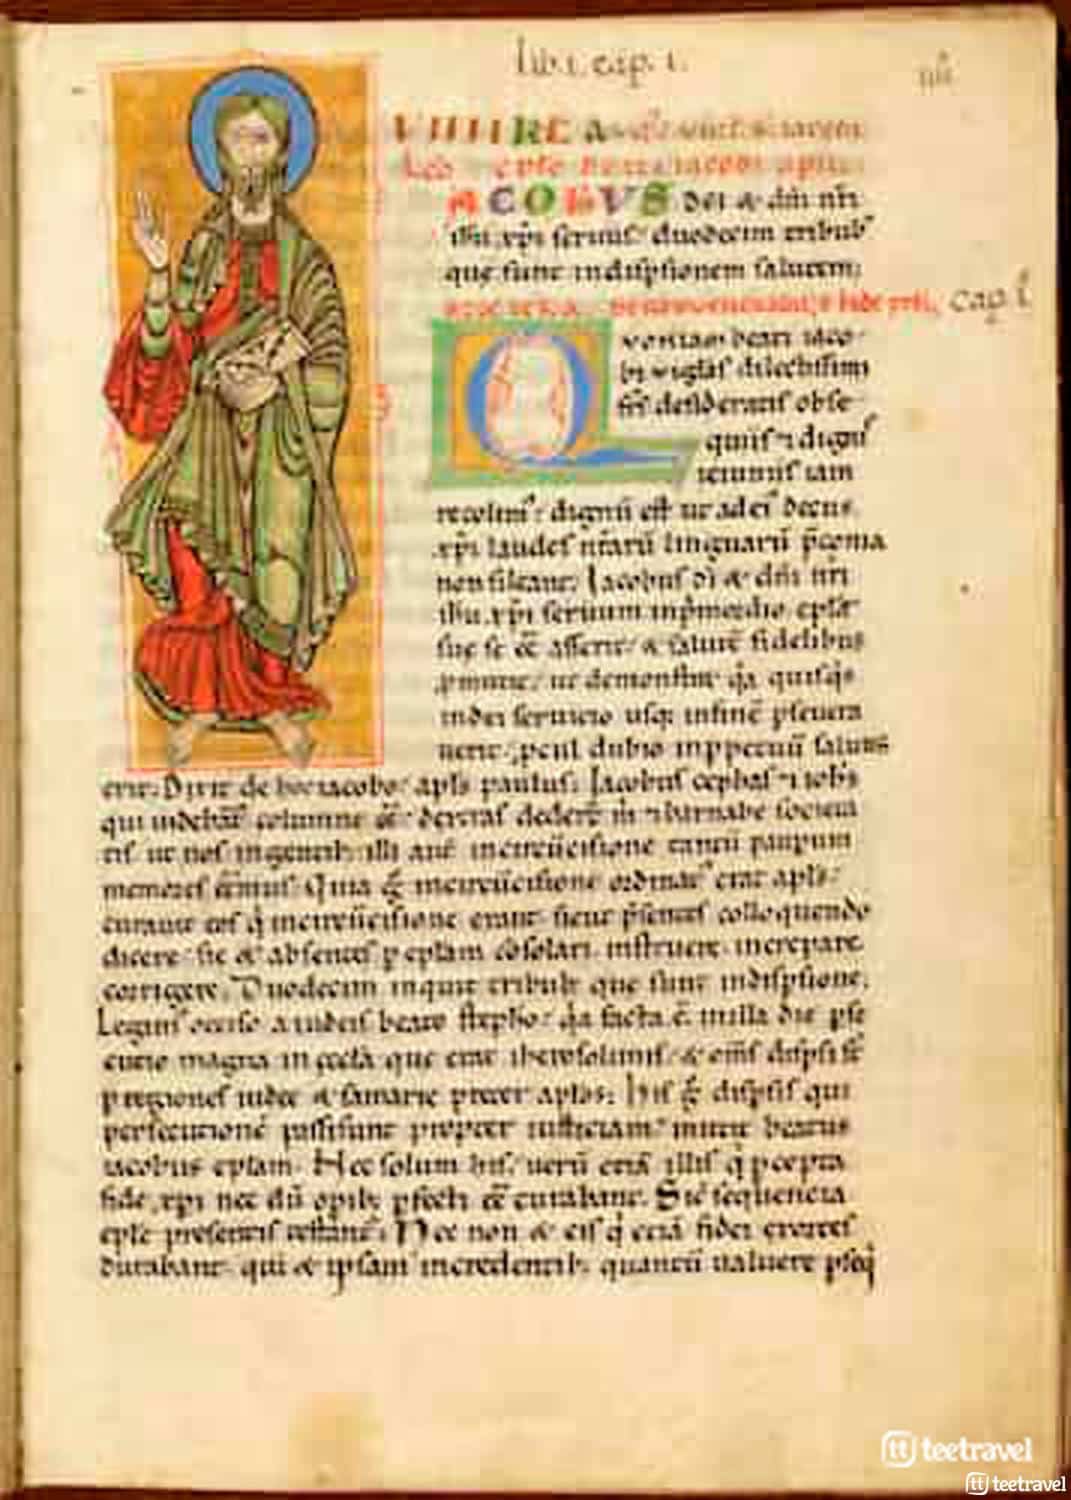 lib. i. cap. i.
iiii
VIIII KL A
ACOBUS dei & dñi nři
ihu xpi seruus duodecim tribub'
que sunt indispsionem salutem:
cap. i.
Quoniam beati iaco-
bi uigilias dilectissimi
frs desiderant obse
quiis & dignis
ieiuniis iam
recolim': dignū est ut ad ei' decus.
xpi laudes nrarū linguarū pconia
non sileant. Iacobus di & dñi nři
ihu xpi seruum
sue se eē asserit & salutē fidelibus
ut demonstret qa quisqs
indei seruicio usq; infinē pseuera
uerit: pcul dubio inppetuū saluus
erit. Dixit de hoc iacobo apls paulus: Iacobus cephas & iohs
qui uidebāt columne eē dextras dederē m & barnabe societa
tis ut nos ingentib; illi aut incircūcisione tantū paupum
memores Quia incircūcisione ordinat' erat apls:
curauit eos q incircūcisione erant sicut psentes colloquendo
dicere: sic & absentes p eplam cōsolari. instruere. increpare.
corrigere. Duodecim inquit tribub; que sunt indispsione.
Legim' occiso a iudeis beato stepho: qa facta ē. in illa die pse
cutio magna in eccla que erat iherosolimis. & oms dispsi st
p regiones iudee & samarie preter aplos: His g dispsis qui
persecutionē passi sunt propter iusticiam: mittit beatus
iacobus eplam. Nec solum his: uerū etiā illis q pcepta
fide xpi nec dū opib; pfecti eē curabant. Sic sequencia
eple presentis testant: Nec non & eis q etiā fidei exortes
durabant. qui & ipsam incredentib; quantū ualuere pseq
teetravel
teetravel